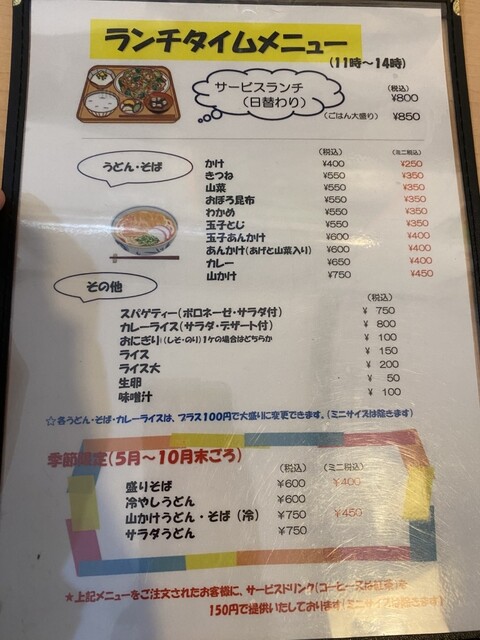 ランチタイムメニュー
(11時～14時)
サービスランチ
(日替わり)
(税込)
¥800
(ごはん大盛り) ¥850
うどん・そば
(税込) (ミニ税込)
かけ ¥400 ¥250
きつね ¥550 ¥350
山菜 ¥550 ¥350
おぼろ昆布 ¥550 ¥350
わかめ ¥550 ¥350
玉子とじ ¥550 ¥350
玉子あんかけ ¥600 ¥400
あんかけ(あげと山菜入り) ¥600 ¥400
カレー ¥650 ¥400
山かけ ¥750 ¥450
その他
(税込)
スパゲティー(ボロネーゼ・サラダ付) ¥ 750
カレーライス(サラダ・デザート付) ¥ 800
おにぎり(しそ・のり)1ケの場合はどちらか ¥ 100
ライス ¥ 150
ライス大 ¥ 200
生卵 ¥ 50
味噌汁 ¥ 100
☆各うどん・そば・カレーライスは、プラス100円で大盛りに変更できます。(ミニサイズは除きます)
季節限定(5月～10月末ごろ) (税込) (ミニ税込)
盛りそば ¥600 ¥400
冷やしうどん ¥600
山かけうどん・そば(冷) ¥750 ¥450
サラダうどん ¥750
★上記メニューをご注文されたお客様に、サービスドリンク(コーヒー又は紅茶)を
150円で提供いたしております(ミニサイズは除きます)